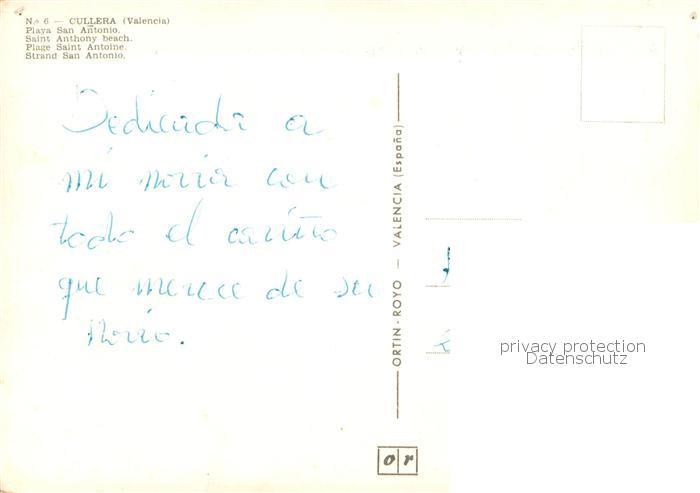 N.º 6 — CULLERA (Valencia)
Playa San Antonio.
Saint Anthony beach.
Plage Saint Antoine.
Strand San Antonio.
Dedicada a
mi novia con
todo el cariño
que merece de su
novio.
ORTIN-ROYO — VALENCIA (España)
or
privacy protection
Datenschutz